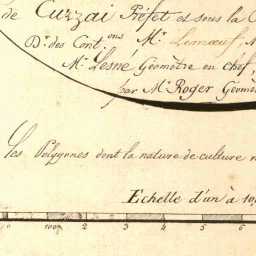 de Cuzzai Préfet et sous la
Dr. des Contons Mr. Lemoeuf,
Mr. Lesné Géomètre en chef,
par Mr. Roger Géom
Les Polygones dont la nature de culture
Echelle d'un à 10
0 100 2 3 4 5 6